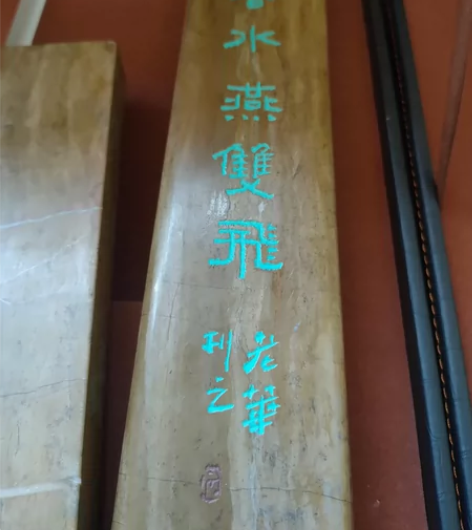 水燕雙飛
老華
刊之